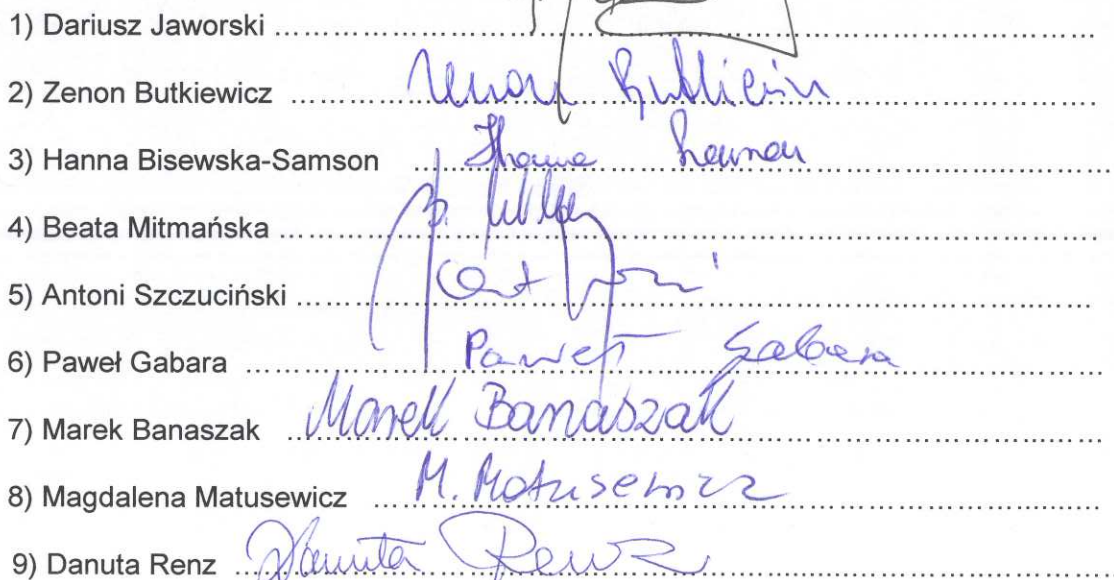 1) Dariusz Jaworski ..................
2) Zenon Butkiewicz .................. Zenon Butkiewicz
3) Hanna Bisewska-Samson .................. Hanna Samson
4) Beata Mitmańska .................. B. Mitm
5) Antoni Szczuciński ..................
6) Paweł Gabara .................. Paweł Gabara
7) Marek Banaszak .................. Marek Banaszak
8) Magdalena Matusewicz .................. M. Matusewicz
9) Danuta Renz .................. Danuta Renz